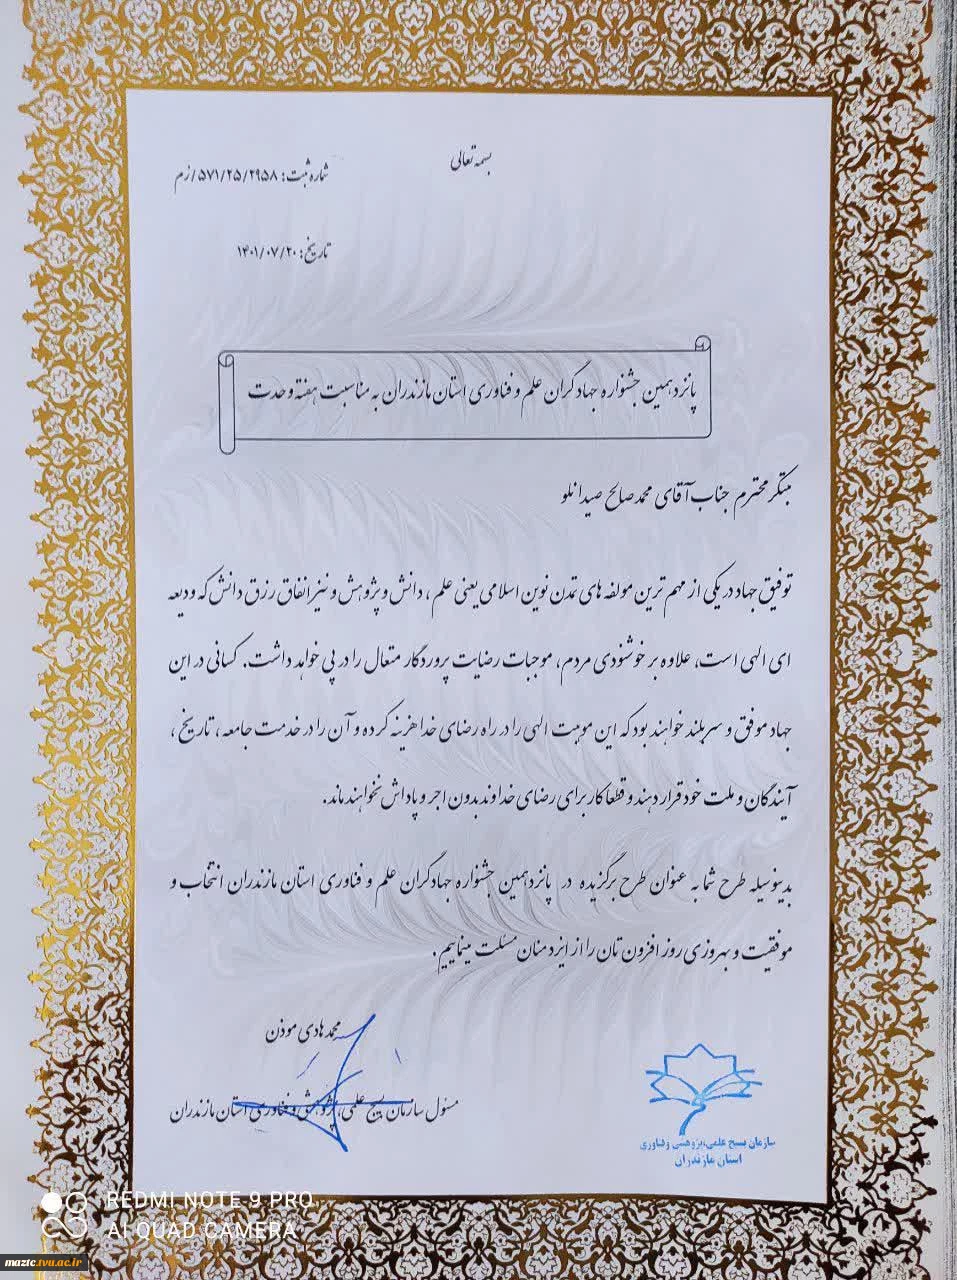 بسمه تعالی
شماره ثبت: ۵۷۱/۲۵/۲۹۵۸/زم
تاریخ: ۱۴۰۱/۰۷/۲۰
پانزدهمین جشنواره جهادگران علم و فناوری استان مازندران به مناسبت هفته وحدت
مبتکر محترم جناب آقای محمد صالح صیدانلو
توفیق جهاد در یکی از مهم ترین مولفه های تمدن نوین اسلامی یعنی علم ، دانش و پژوهش و نیز انفاق رزق دانش که ودیعه
ای الهی است، علاوه بر خوشنودی مردم، موجبات رضایت پروردگار متعال را در پی خواهد داشت. کسانی در این
جهاد موفق و سربلند خواهند بود که این موهبت الهی را در راه رضای خدا هزینه کرده و آن را در خدمت جامعه ، تاریخ ،
آیندگان و ملت خود قرار دهند و قطعا کار برای رضای خداوند بدون اجر و پاداش نخواهند ماند.
بدینوسیله طرح شما به عنوان طرح برگزیده در پانزدهمین جشنواره جهادگران علم و فناوری استان مازندران انتخاب و
موفقیت و بهروزی روز افزون تان را از ایزد منان مسئلت مینماییم.
محمد هادی موذن
مسئول سازمان بسیج علمی، پژوهشی و فناوری استان مازندران
سازمان بسیج علمی،پژوهشی و فناوری
استان مازندران
REDMI NOTE 9 PRO
AI QUAD CAMERA
mazic.tvu.ac.ir